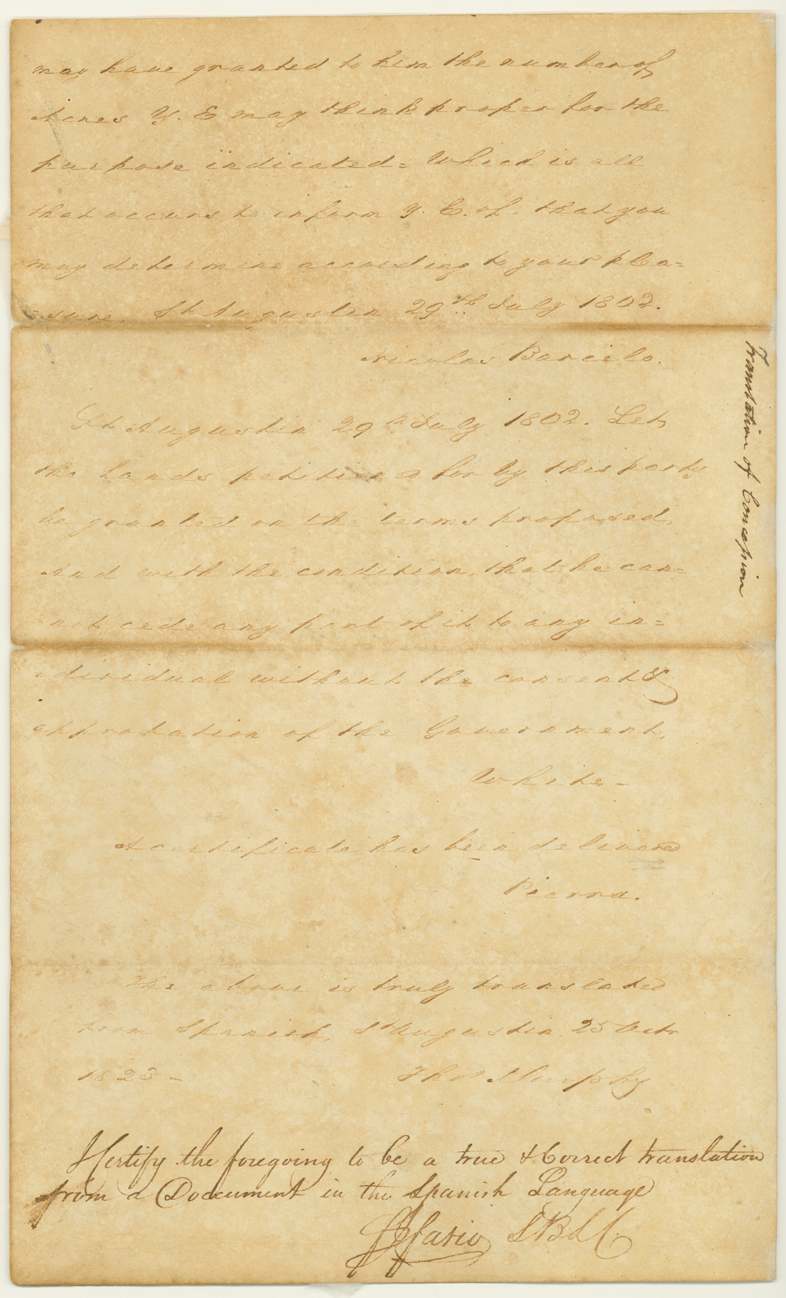 may have granted to him the number of
Acres Y. E may think proper for the
purpose indicated = Which is all
that occurs to inform Y. E. of. that you
may determine according to your plea=
asure. St Augustin 29th July 1802.
Nicolas Barcelo.
St Augustin 29th July 1802. Let
the lands petitioned for by this party
be granted on the terms proposed,
and with the condition, that he can=
not cede any part of it to any in=
dividual without the consent &
approbation of the Government.
White -
A certificate has been delivered
Pierra.
The above is truly translated
from Spanish, St Augustin 25 Octr
1823 - Thos Murphy
I Certify the foregoing to be a true & Correct translation
from a Document in the Spanish Language
Translation of Concepion